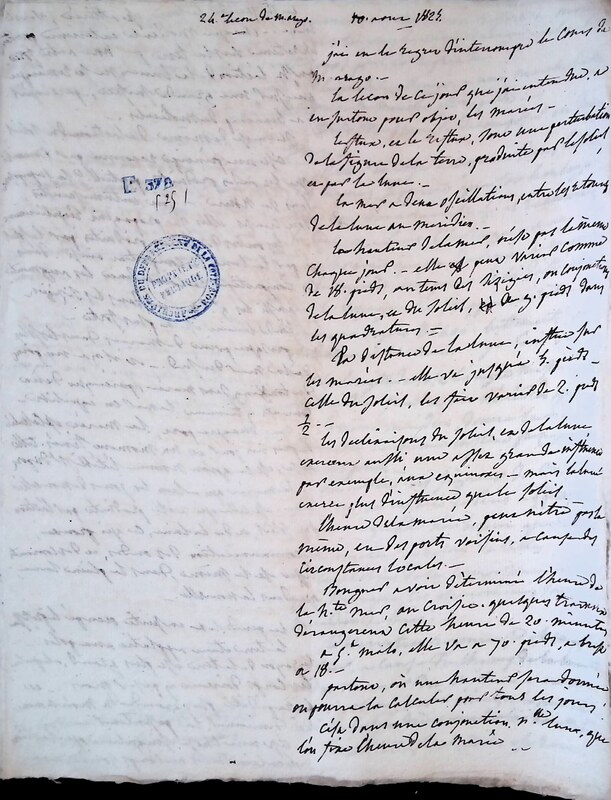 24.e lecon de m. arago. 10. aout 1825.
j'ai eu le regret d'interrompre le Cours de
m. arago. —
la lecon de ce jour que j'ai entendue, a
eu surtout pour objet, les marées. —
le flux, et le reflux, sont une perturbation
de la figure de la terre, produite par le soleil
et par la lune. —
la mer a deux oscillations, entre les retours
de la lune au meridien. —
la hauteur de la mer, n'est pas la même
chaque jour. — elle peut varier comme
de 18. pieds, au tems des sizigies, ou conjonctions
de la lune, et du soleil, de 9. pieds dans
les quadratures. —
la distance de la lune, influe sur
les marées. — elle va jusqu'à 3. pieds —
celle du soleil, les fait varier de 2. pieds
1/2 —
les declinaisons du soleil, et de la lune
exercent aussi une assez grande influence
par exemple, aux equinoxes — mais la lune
exerce plus d'influence que le soleil.
l'heure de la marée, peut n'être pas la
même, en des ports voisins, a cause des
circonstances locales. —
Bouguer avoit déterminé l'heure de
la h.te mer, au Croisic. quelques travaux
dérangerent cette heure de 20. minutes
a S.t malo, elle va a 70. pieds, a brest
a 18. —
partout, où une hauteur sera donnée
on pourra la calculer pour tous les jours.
C'est dans une conjonction, n.lle lune, que
l'on fixe l'heure de la marée —
F 378
5251
ARCHIVES DU DEPARTEMENT DE LA
PROPRIETE
PUBLIQUE